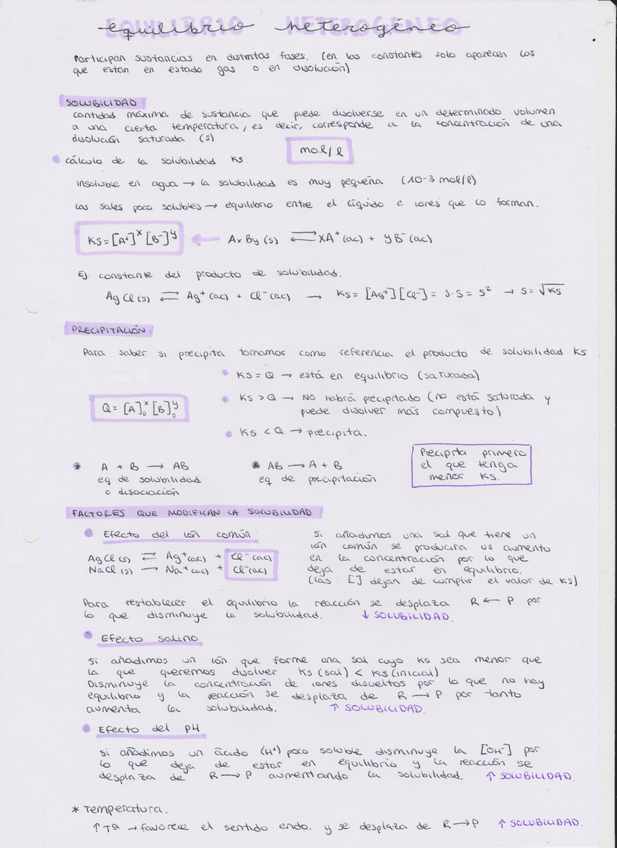 equilibrio heterogéneo
Participan sustancias en distintas fases. (en las constantes solo aparecen las
que estan en estado gas o en disolución)
SOLUBILIDAD
cantidad máxima de sustancia que puede disolverse en un determinado volumen
a una cierta temperatura, es decir, corresponde a la concentración de una
disolución saturada (s)
mol/l
cálculo de la solubilidad Ks
insoluble en agua → la solubilidad es muy pequeña (10-3 mol/l)
Las sales poco solubles → equilibrio entre el líquido e iones que lo forman.
Ks = [A⁺]ˣ [B⁻]ʸ ← AxBy (s) ⇄ xA⁺ (ac) + yB⁻ (ac)
Ej. constante del producto de solubilidad.
AgCl (s) ⇄ Ag⁺ (ac) + Cl⁻ (ac) → Ks = [Ag⁺] [Cl⁻] = s·s = s² → s = √Ks
PRECIPITACIÓN
Para saber si precipita tomamos como referencia el producto de solubilidad Ks
Ks = Q → está en equilibrio (saturada)
Q = [A]₀ˣ [B]₀ʸ
Ks > Q → No habrá precipitado (no está saturada y
puede disolver más compuesto)
Ks < Q → precipita.
Precipita primero
el que tenga
menor Ks.
* A + B → AB
eq de solubilidad
o disociación
* AB → A + B
eq de precipitación
FACTORES QUE MODIFICAN LA SOLUBILIDAD
Efecto del ión común
AgCl (s) ⇄ Ag⁺ (ac) + Cl⁻ (ac)
NaCl (s) → Na⁺ (ac) + Cl⁻ (ac)
si añadimos una sal que tiene un
ión común se producirá us aumento
en la concentración por lo que
deja de estar en equilibrio.
(las [ ] dejan de cumplir el valor de Ks)
Para restablecer el equilibrio la reacción se desplaza R ← P por
lo que disminuye la solubilidad. ↓ SOLUBILIDAD.
Efecto salino
si añadimos un ión que forme una sal cuyo Ks sea menor que
la que queremos disolver Ks (sal) < Ks (inicial)
Disminuye la concentración de iones disueltos por lo que no hay
equilibrio y la reacción se desplaza de R → P por tanto
aumenta la solubilidad. ↑ SOLUBILIDAD.
Efecto del PH
si añadimos un ácido (H⁺) poco soluble disminuye la [OH⁻] por
lo que deja de estar en equilibrio y la reacción se
desplaza de R → P aumentando la solubilidad. ↑ SOLUBILIDAD.
* Temperatura.
↑ Tª → favorece el sentido endo. y se desplaza de R → P ↑ SOLUBILIDAD.